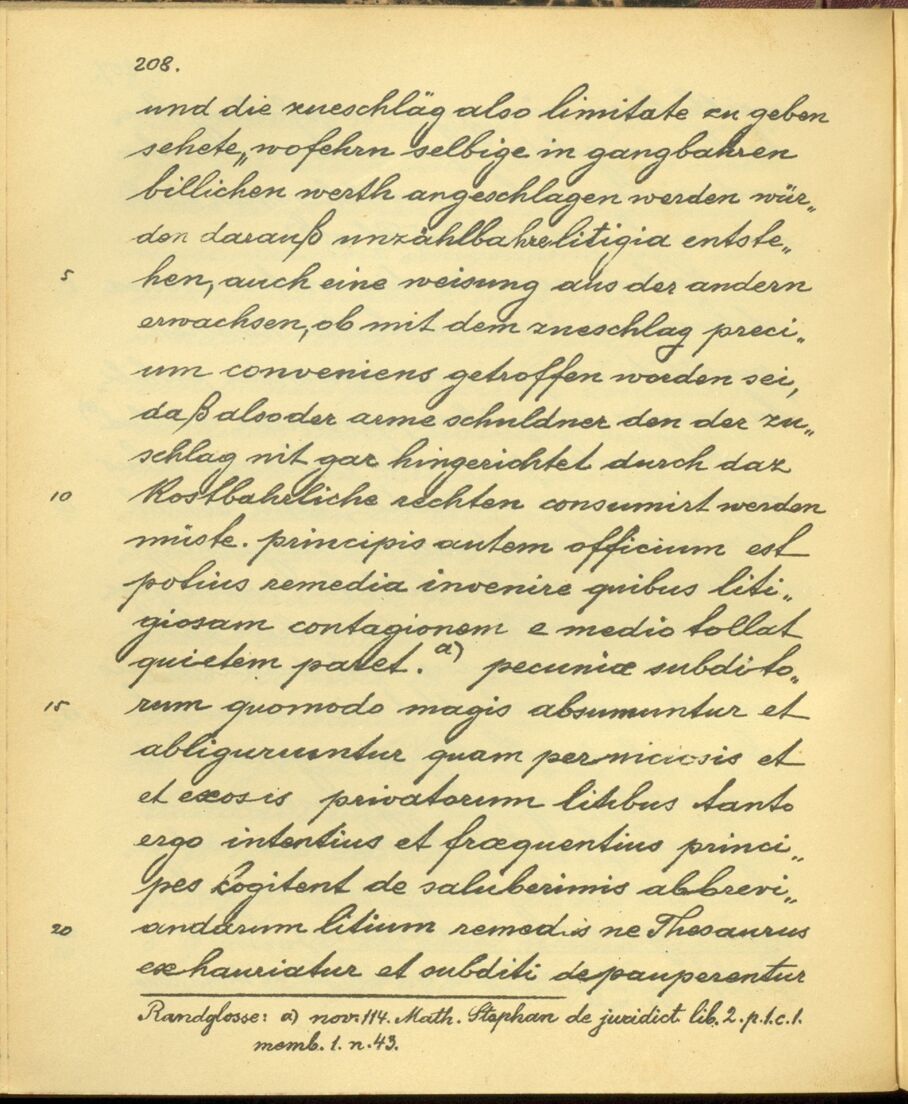 208.
und die zueschläg also limitate zu geben
sehete„ wofehrn selbige in gangbahren
billichen werth angeschlagen werden wür„
den darauß unzählbahre litigia entste„
5 hen, auch eine weisung aus der andern
erwachsen, ob mit dem zueschlag preci„
um conveniens getroffen worden sei,
daß also der arme schuldner den der zu„
schlag nit gar hingerichtet durch daz
10 Kostbahrliche rechten consumirt werden
müste. principis autem officium est
potius remedia invenire quibus liti„
giosam contagionem e medio tollat
quietem paret. a) pecuniæ subdito„
15 rum quomodo magis absumuntur et
abliguruuntur quam perniciosis et
et exosis privatorum litibus tanto
ergo intentius et fræquentius princi„
pes cogitent de saluberimis abbrevi„
20 andarum litium remediis ne Thesaurus
exhauriatur et subditi depauperentur
Randglosse: a) nov: 114. Math. Stephan de juridict. lib. 2. p. 1. c. 1.
memb. 1. n. 43.